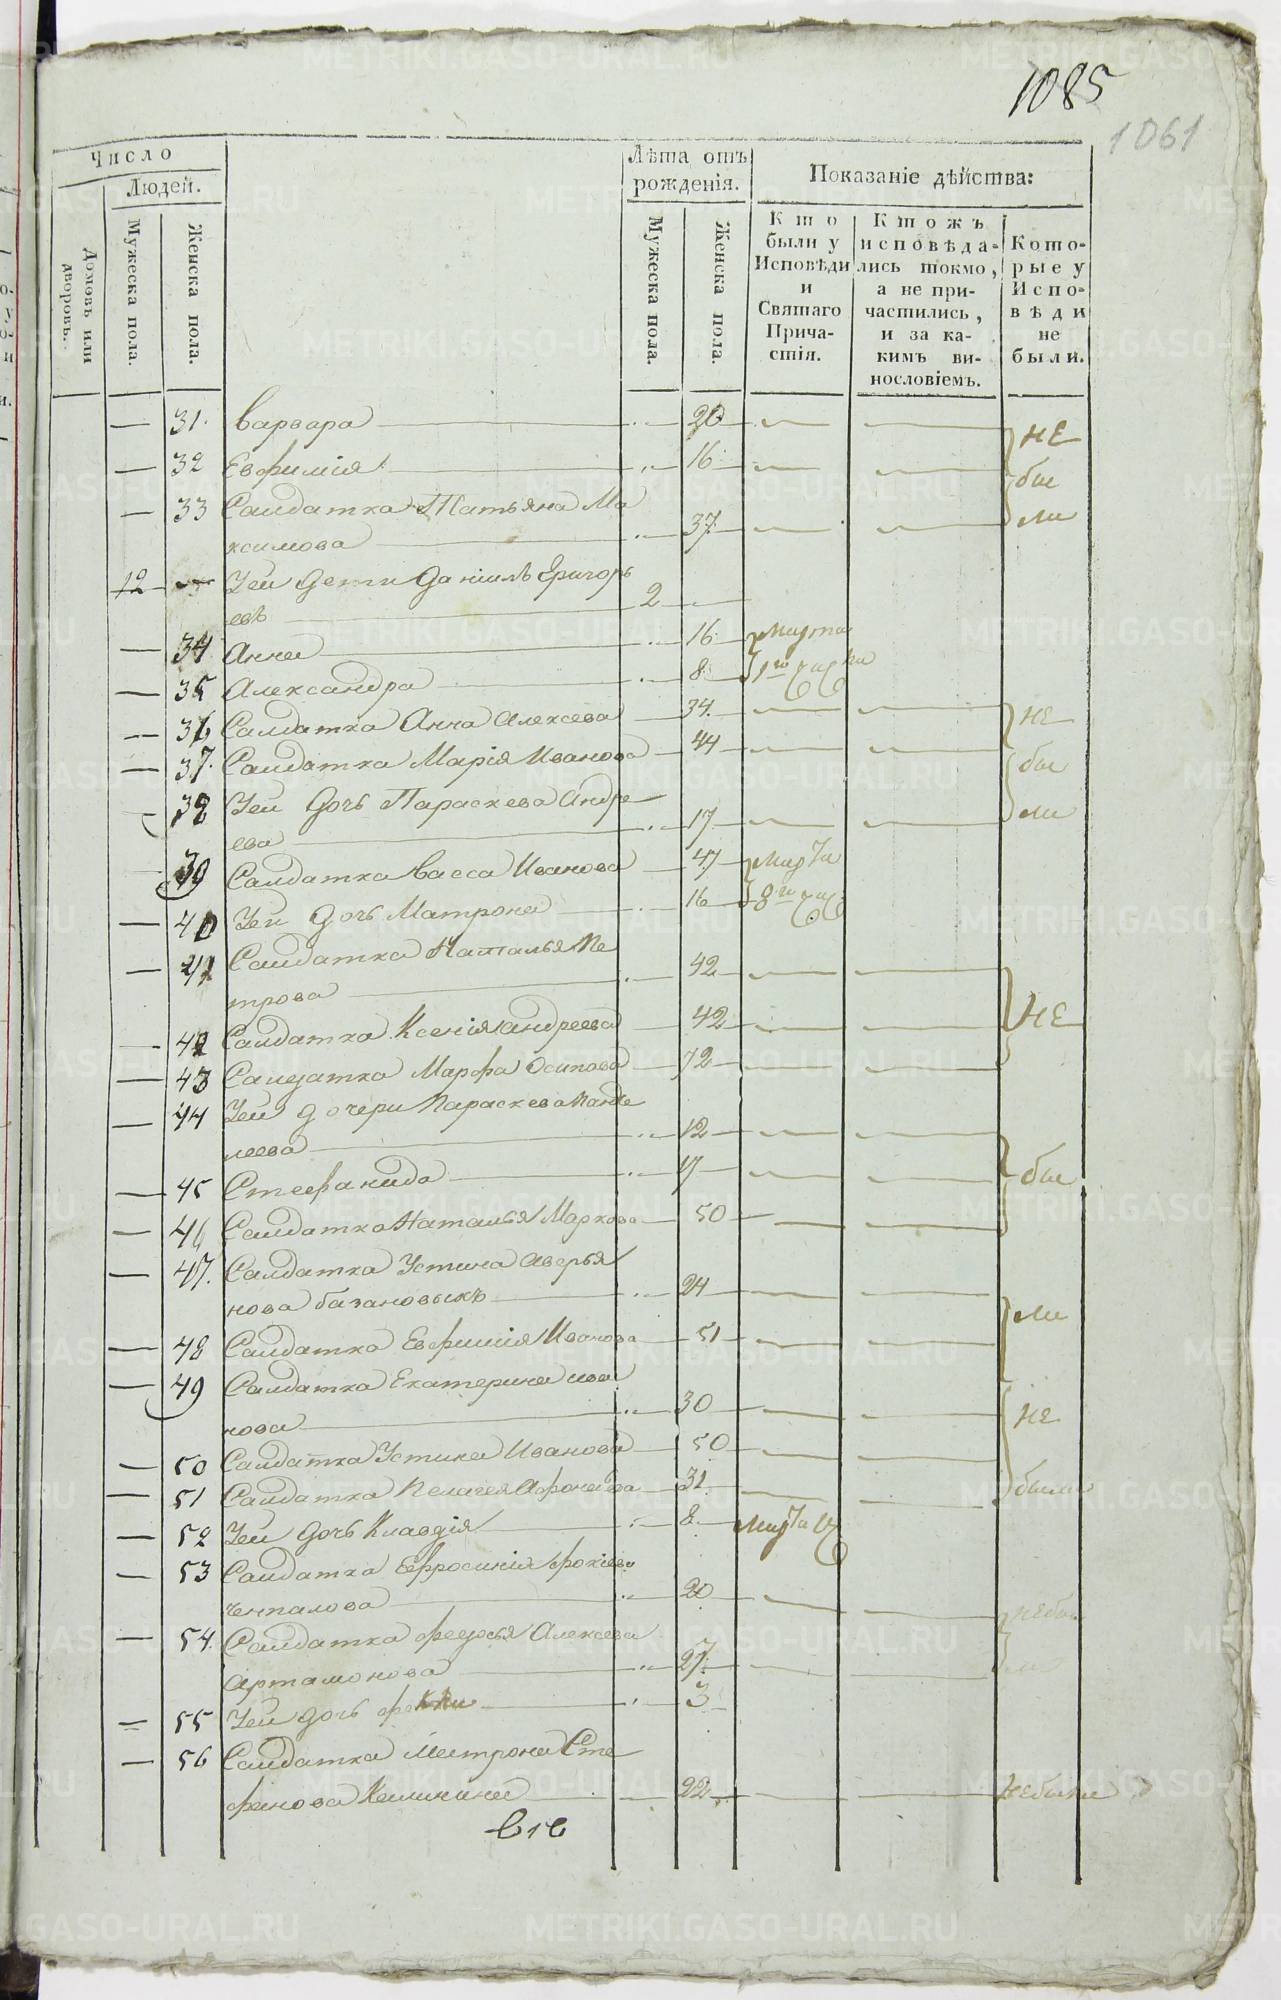 1085
1061
Число
Людей.
Домовъ или дворовъ.
Мужеска пола.
Женска пола.
Лѣта отъ рожденія.
Мужеска пола.
Женска пола.
Показаніе дѣйства:
Кто были у Исповѣди и Святаго Причастія.
Ктожъ исповѣдались токмо, а не причастились, и за какимъ винословіемъ.
Которые у Исповѣди не были.
31. Варвара 20 не
32 Евфимія 16 бы
33 Салдатка Татьяна Ма
ксимова 37 ли
12 Уеи дети Даніилъ Григорь
евъ 2
34 Анна 16 Марта
35 Александра 8 1го
36 Салдатка Анна Алексева 34 не
37. Салдатка Марія Иванова 44 бы
38 Уеи дочь Параскева Андре
ева 17 ли
39 Салдатка Васса Иванова 47 Марта
40 Уеи дочь Матрона 16 8го
41 Салдатка Наталья Пе
трова 42
42 Салдатка Ксенія Андреева 42 не
43 Салдатка Марфа Осипова 72
44 Уеи дочери Параскева Панте
леева 12
45 Стефанида 17 бы
46 Салдатка Наталья Маркова 50
47. Салдатка Устина Аверья
нова Базановыхъ 24 ли
48 Салдатка Евфимія Иванова 51
49 Салдатка Екатерина Ива
нова 30 не
50 Салдатка Устина Иванова 50
51 Салдатка Пелагея 31 были
52 Уеи дочь Клавдія 8 Марта
53 Салдатка Ефросинія
20
54. Салдатка Федосья Алексева не бы
Артамонова 27 ли
55 Уеи дочь 3
56 Салдатка Матрона Сте
фанова 22 Небыли